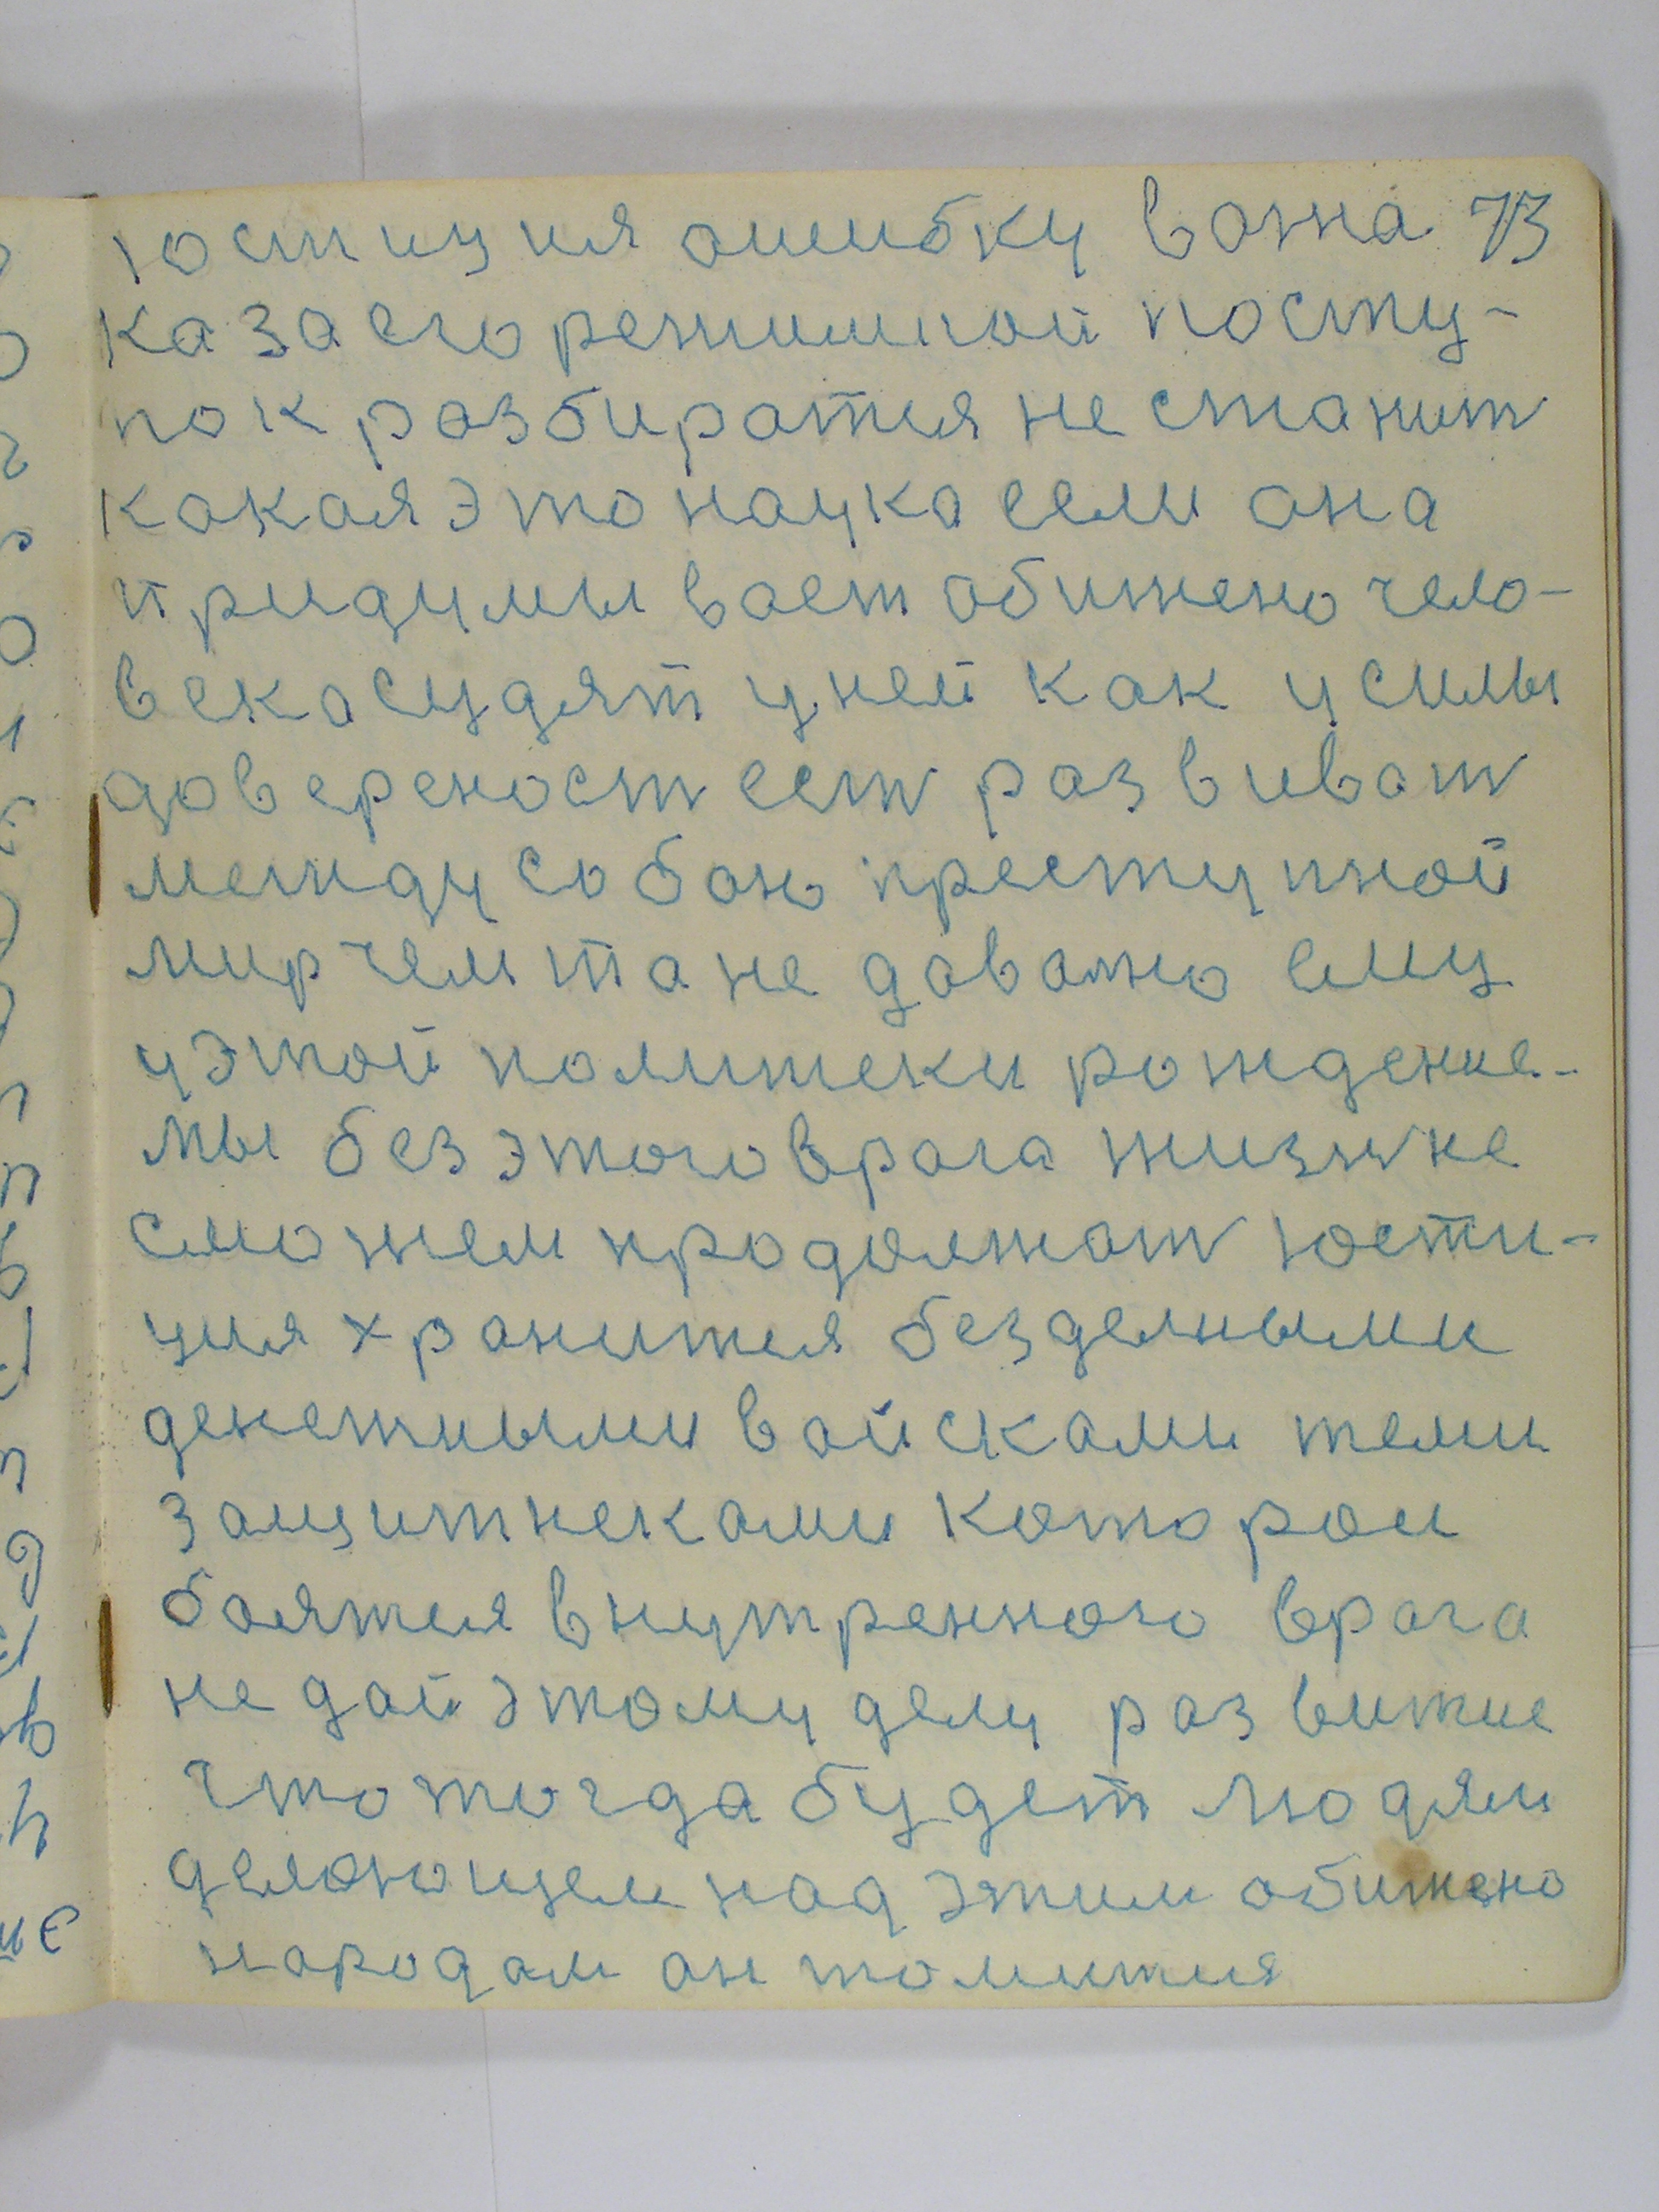 юстиция ошибку важна 73
ка за его режимной посту-
пок разбиратся не станит
какая это наука если она
придумывает обижено чело-
века судят у ней как у силы
довереност ест развиват
между собою преступной
мир чем та не даважно ему
у этой политеки рождение-
мы без этого врага жизн не
сможем продолжат юсти-
ция хранится безделными
денежными войсками теми
защитнеками которои
боятся внутренного врага
не дай этому делу развитие
что тогда будет людям
делающем над этим обижено
народам он томится